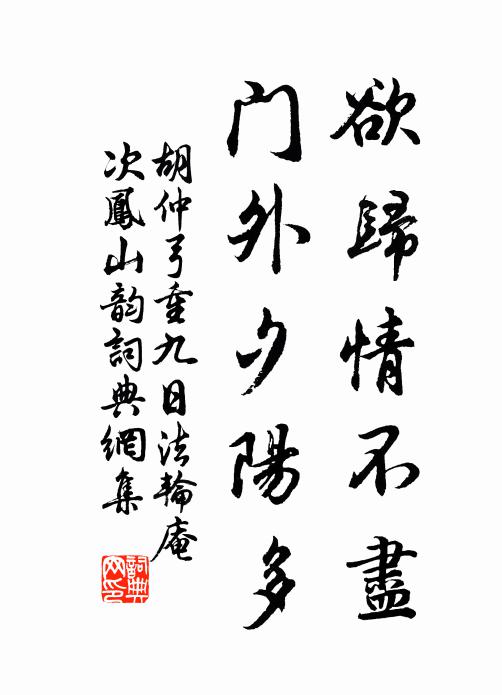 欲歸情不盡
門外夕陽多
胡仲弓重九日法輪庵
次鳳山韵詞典網集
詞典
网印